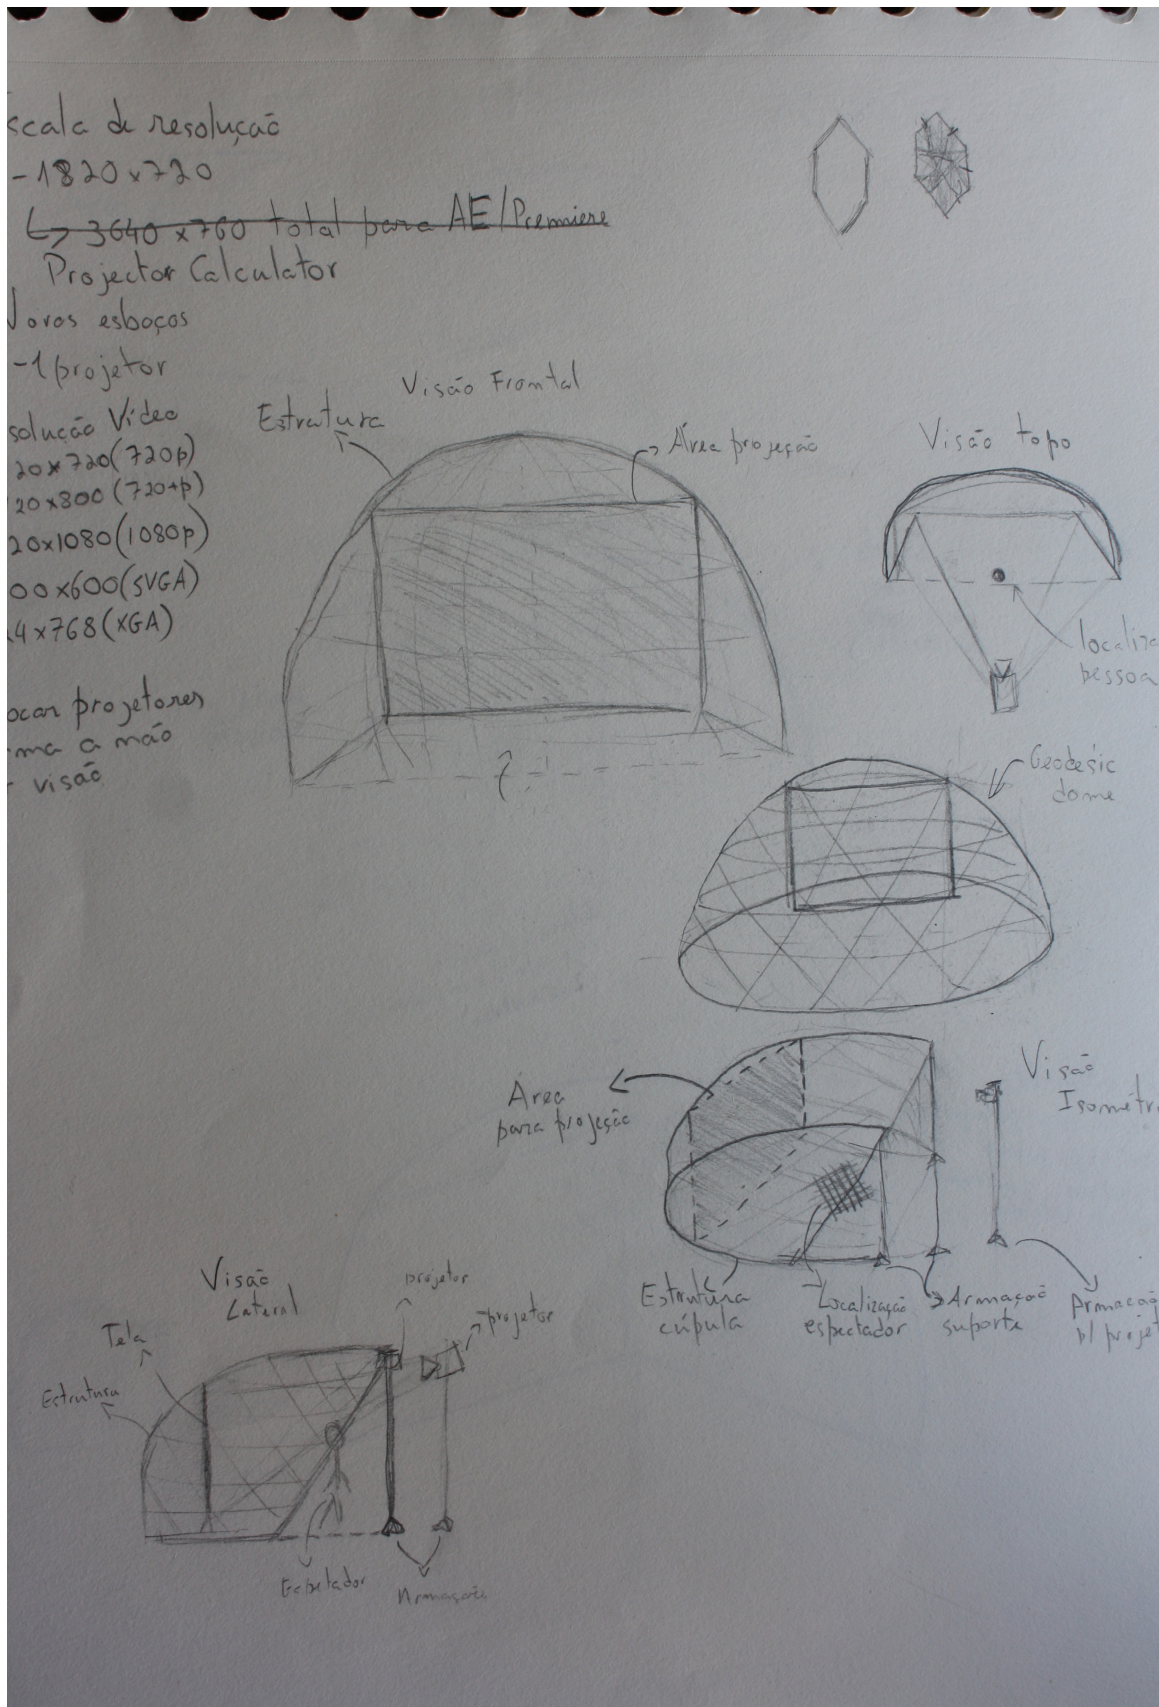 scala de resolução
- 1820x720
↳ 3640 x 760 total para AE/Premiere
Projector Calculator
ovos esboços
-1 projetor
solução Vídeo
20x720(720p)
20x800(720+p)
20x1080(1080p)
00x600(SVGA)
4x768(XGA)
ocar projetores
ma a mão
visão
Visão Frontal
Estrutura
Área projeção
Visão topo
localiza
pessoa
Geodesic
dome
Área
para projeção
Visão
Isométr
Estrutura
cúpula
Localização
espectador
Armação
suporte
Armação
p/ projet
Visão
Lateral
projetor
projetor
Tela
Estrutura
Espetador
Armações